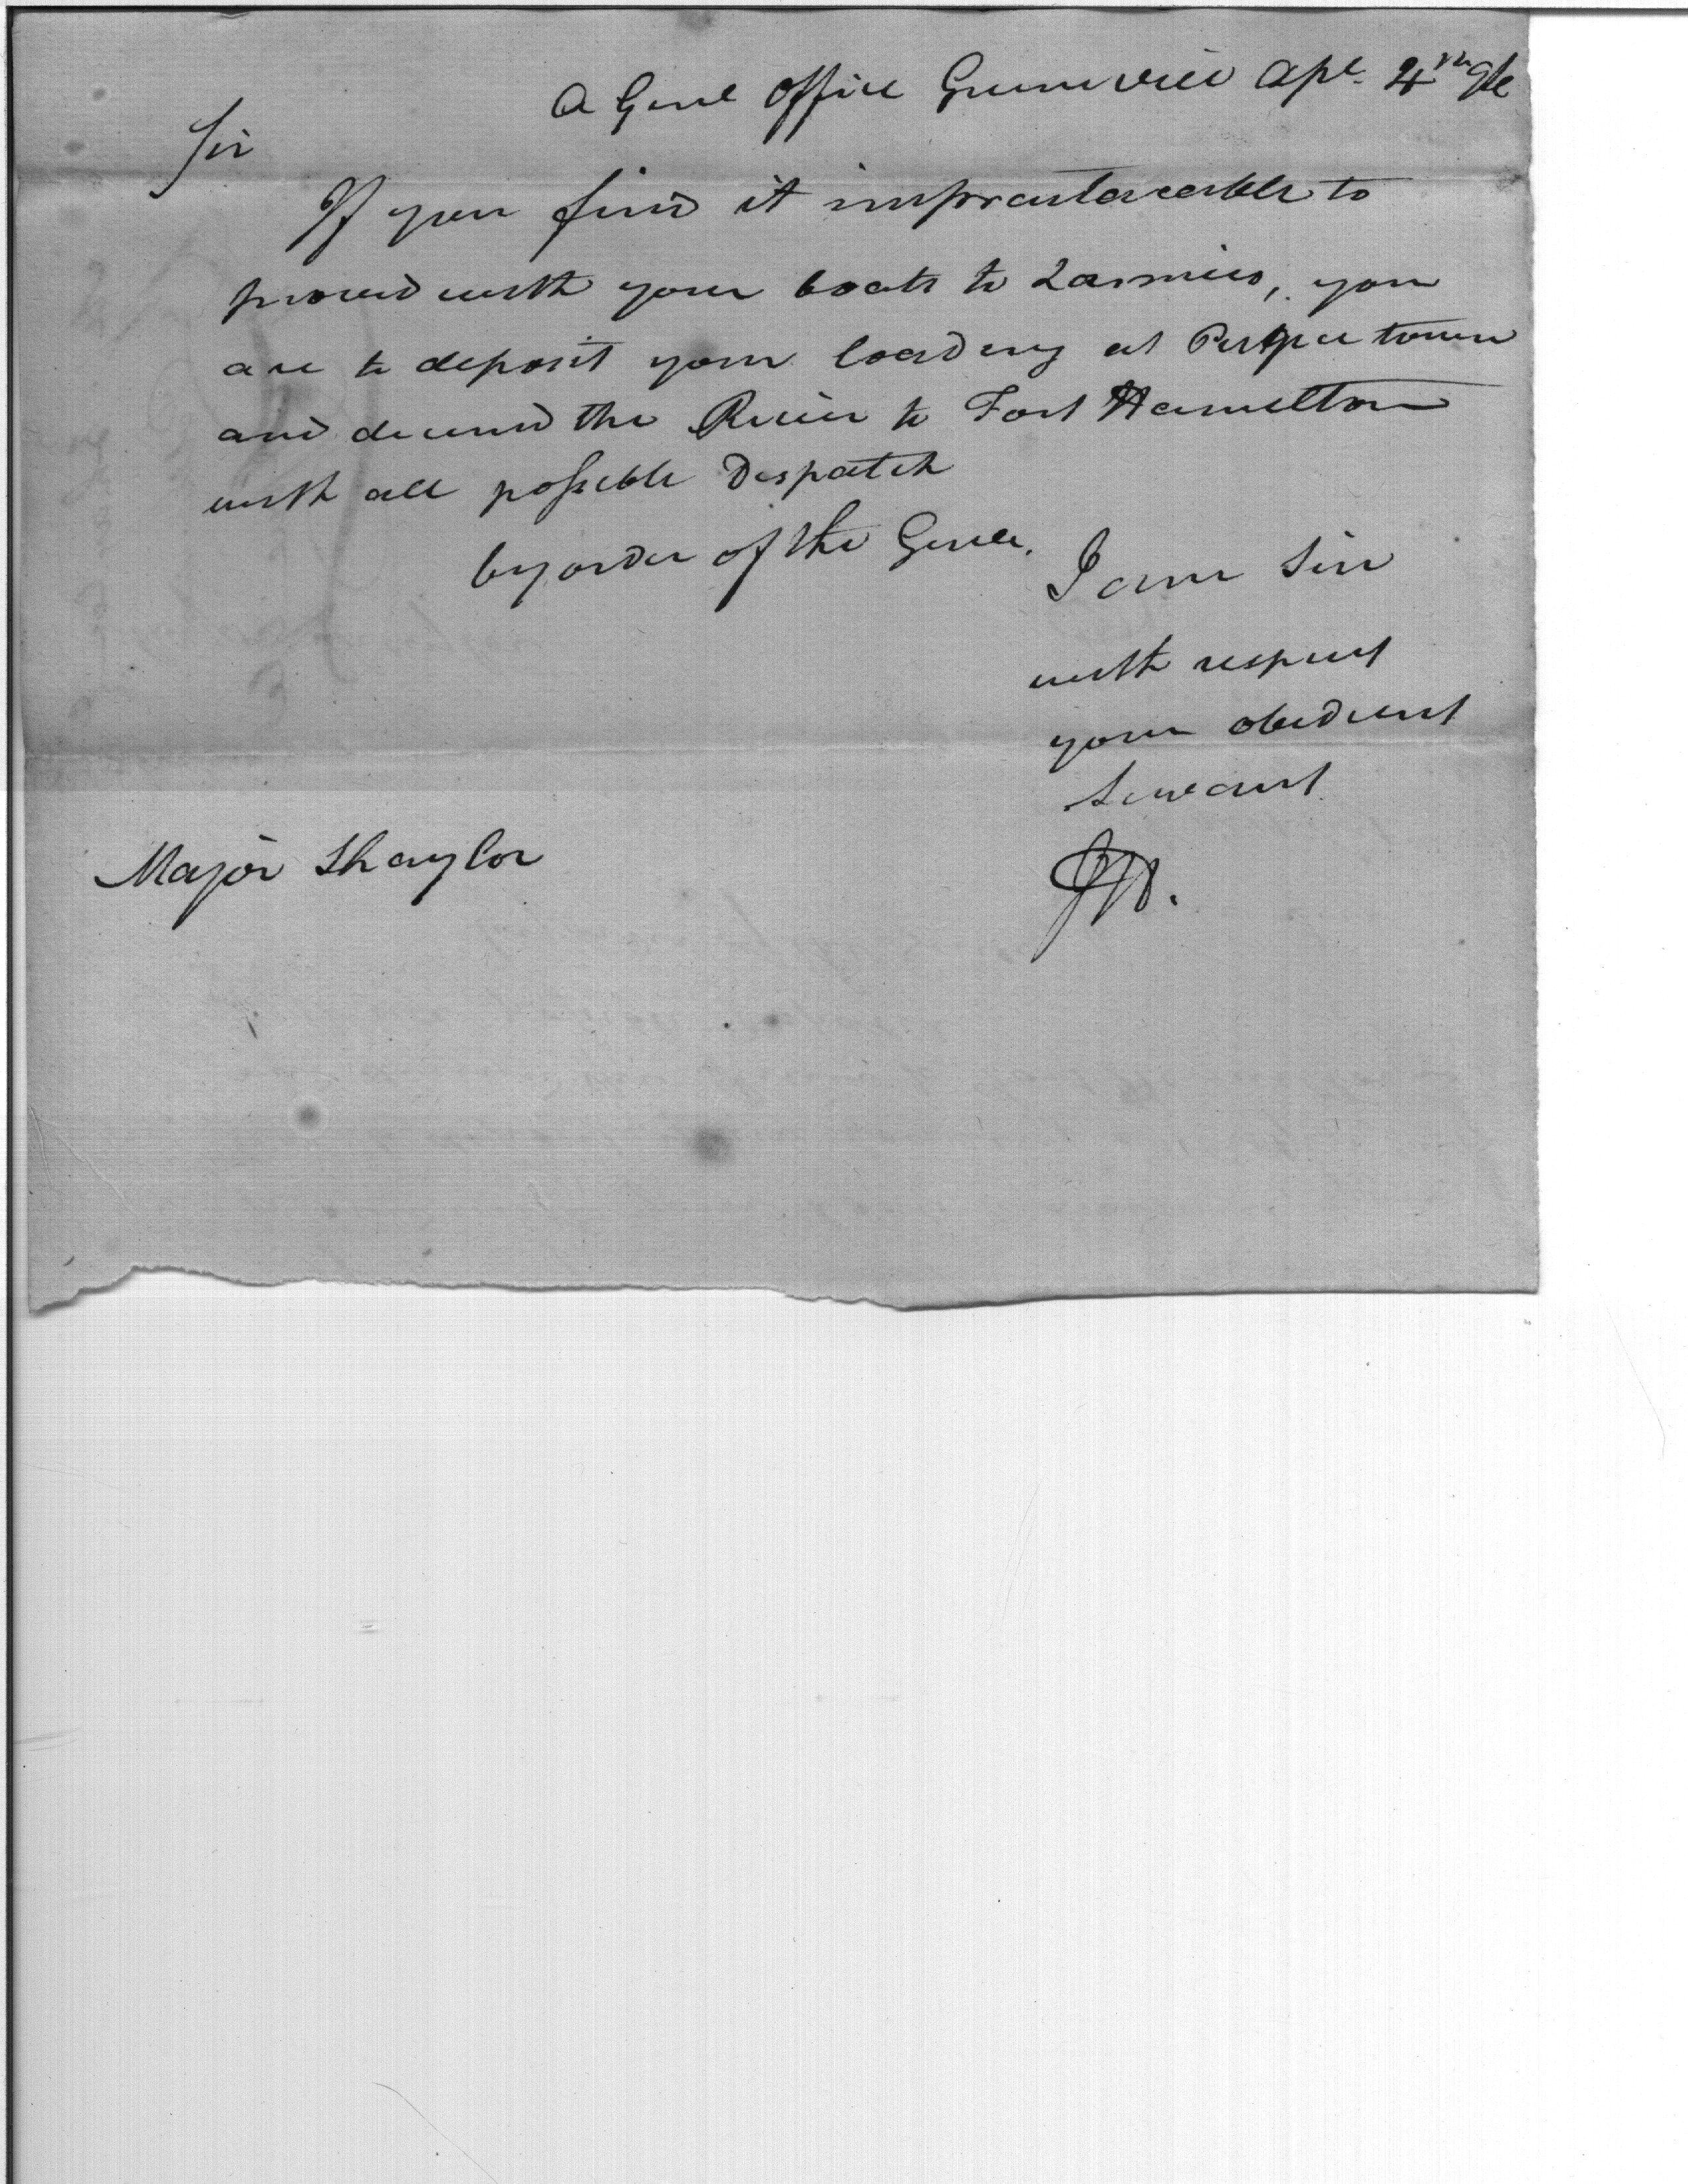 A Genl Office Greenville Apl. 4th 96
Sir
If you find it impractaceable to
proceed with your boats to Laramies, you
are to deposit your loading at Piqua town
and decend the River to Fort Hamelton
with all possible Despatch
by order of the Genle.
I am Sir
with respect
your obedient
Servant
Major Shaylor
JW.